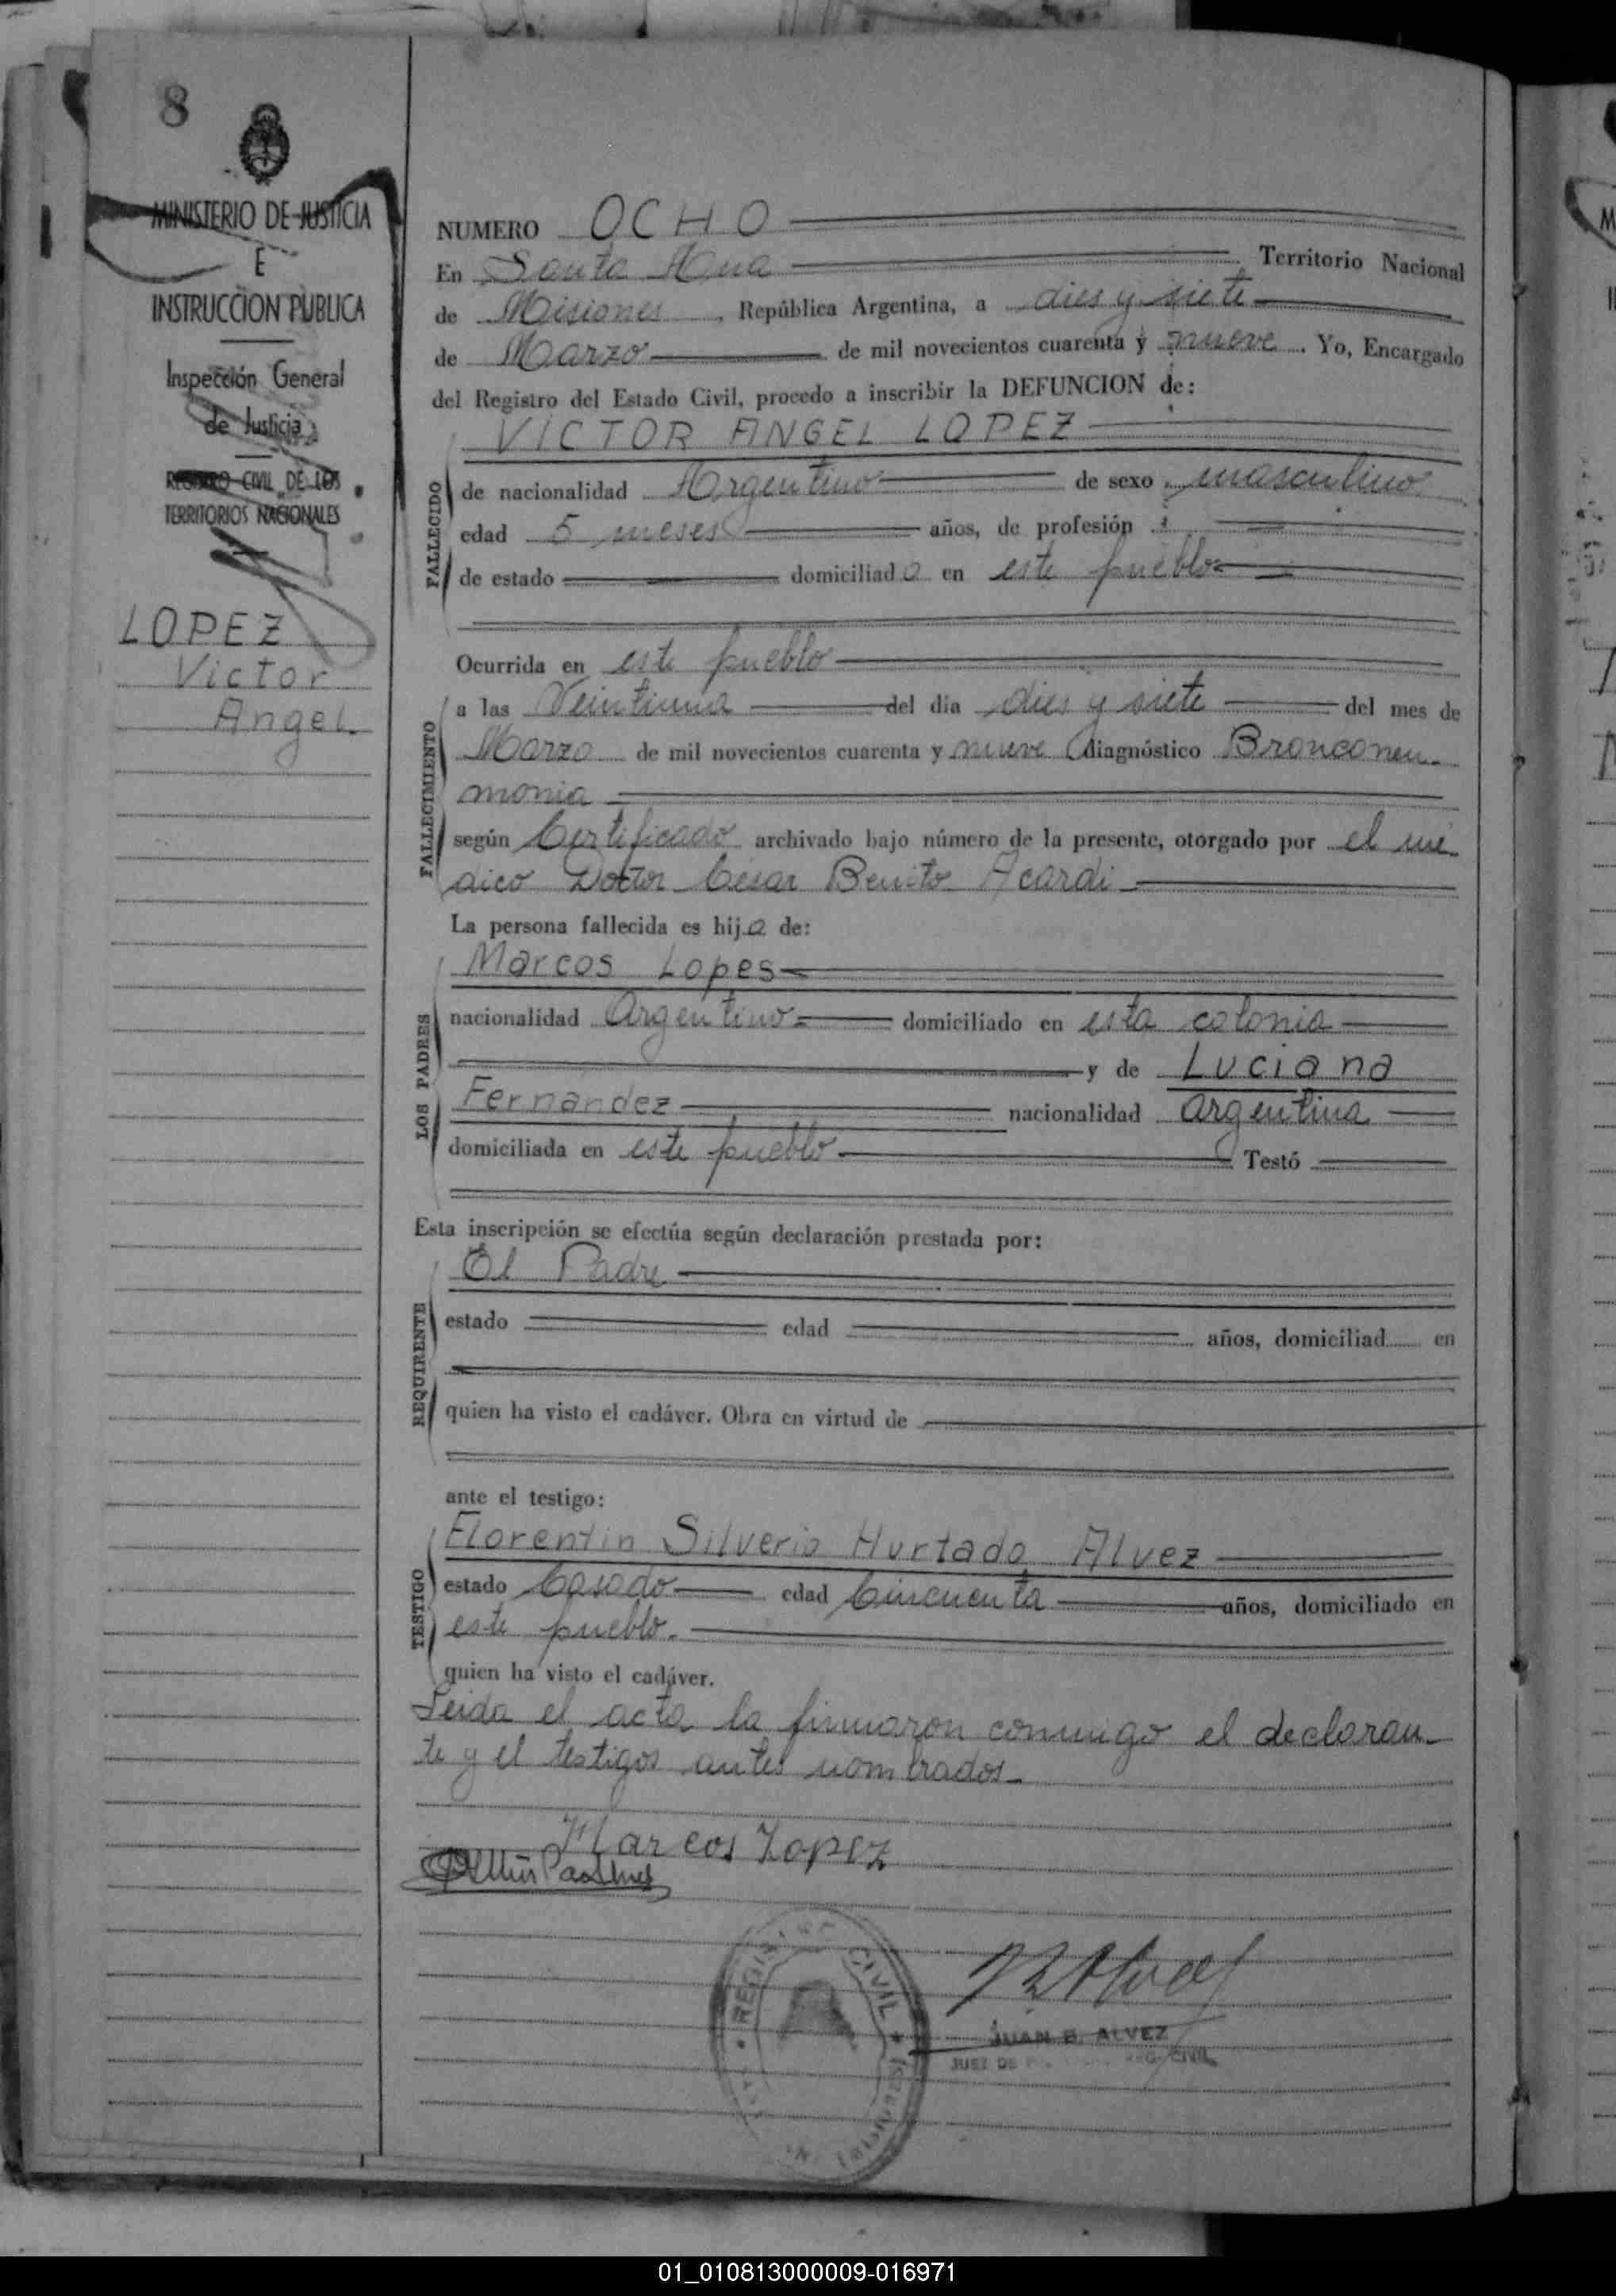 8
MINISTERIO DE JUSTICIA
E
INSTRUCCION PUBLICA
Inspección General
de Justicia
REGISTRO CIVIL DE LOS
TERRITORIOS NACIONALES
LOPEZ
Victor
Angel
NUMERO OCHO
En Santa Ana Territorio Nacional
de Misiones, República Argentina, a dies y siete
de Marzo de mil novecientos cuarenta y nueve. Yo, Encargado
del Registro del Estado Civil, procedo a inscribir la DEFUNCION de:
VICTOR ANGEL LOPEZ
FALLECIDO
de nacionalidad Argentino de sexo masculino
edad 5 meses años, de profesión
de estado domiciliado en este pueblo
Ocurrida en este pueblo
FALLECIMIENTO
a las Veintiuna del día dies y siete del mes de
Marzo de mil novecientos cuarenta y nueve diagnóstico Bronconeu-
monia
según Certificado archivado bajo número de la presente, otorgado por el mé
dico Doctor César Benito Acardi
La persona fallecida es hijo de:
LOS PADRES
Marcos Lopes
nacionalidad Argentino domiciliado en esta colonia
y de Luciana
Fernández nacionalidad argentina
domiciliada en este pueblo Testó
Esta inscripción se efectúa según declaración prestada por:
REQUIRENTE
El Padre
estado edad años, domiciliad en
quien ha visto el cadáver. Obra en virtud de
ante el testigo:
TESTIGO
Florentin Silverio Hurtado Alvez
estado Casado edad Cincuenta años, domiciliado en
este pueblo.
quien ha visto el cadáver.
Leida el acta la firmaron conmigo el declaran-
te y el testigos antes nombrados
Marcos Lopez
REGISTRO CIVIL
JUAN B. ALVEZ
JUEZ DE REG. CIVIL
01_010813000009-016971